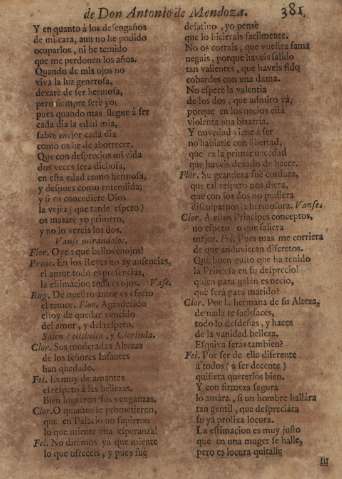 de Don Antonio de Mendoza. 381
Y en quanto à los desengaños
de mi cara, aun no he podido
ocuparlos, ni he temido
que me perdonen los años.
Quando de mis ojos no
viva la luz generosa,
dexarè de ser hermosa,
pero siempre serè yo:
pues quando mas llegue à ser
cada dia la edad mia,
sabrè mejor cada dia
como os he de aborrecer.
Que con desprecios mi vida
dos veces serà dichosa,
en esta edad como hermosa,
y despues como entendida;
y si os concediere Dios
la vejèz; que tarde espero?
os matarè yo primero,
y no lo vereis los dos.
Vanse mirandolos.
Flor. Oyes que bellos enojos!
Princ. En los Reyes no ay ausencias,
el amor todo es presencias,
la estimacion toda es ojos. Vase.
de vuestro
el amor. Flor. Agradecido
estoy de quedar vencido
del amor, y del respeto.
Salen Felisbravo, y Clorinda.
Clor. Sossegadas Altezas
de los señores Infantes
han quedado.
Fel. Es muy de amantes
el respeto à las bellezas.
Bien lograron sus venganças.
Clor. O quanto se
que en Palacio no supieron
lo que miente una esperança!
Fel. No dirèmos ya que miente
lo que ofreceis, y pues fue
desatino, yo pensè
que lo hicierais facilmente.
No os corrais, que vuestra fama
negais, porque haveis sido
tan valientes, que haveis sido
cobardes con una dama.
No esperè la valentia
de los dos, que admiro ya,
porque en los mozos està
violenta una bizarria.
Y novedad viene à ser
no hablarme con libertad,
que es la primer necedad
que haveis dexado de hacer.
Flor. Su grandeza sue cordura,
que tal respeto nos diera,
que con los dos no pudiera
hermosura. Vanse.
Clor. A estos Principes conceptos,
no espero que saliera
mejor. Fel. Pues mas me corriera
de que anduvieran discretos.
Que buen gusto que ha tenido
la Princesa en su desprecio!
quien para galàn es necio,
què serà para marido?
Clor. Por la hermana de su Alteza,
de nada te satisfaces,
todo lo desdeñas, y haces
de la vanidad belleza.
Esquiva seràs tambien?
Fel. Por ser de ello diferente
à todos, à ser decente
quisiera quererlos bien.
Y con firmeza segura
lo amàra, si un hombre hallàra
tan gentil, que despreciàra
su ya prolixa locura.
La estimacion es muy justo
que en una muger se halle,
pero es locura quitalle